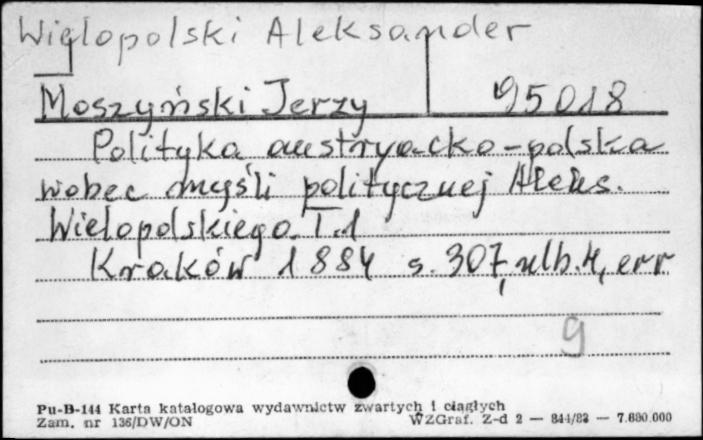 Wielopolski Aleksander
Moszyński Jerzy 95018
Polityka austryacko-polska
wobec myśli politycznej Aleks.
Wielopolskiego. T.1
Kraków 1884 s. 307, nlb. 4, err
9
Pu-B-144 Karta katalogowa wydawnictw zwartych i ciągłych
Zam. nr 136/DW/ON WZGraf. Z-d 2 — 844/82 — 7.680.000